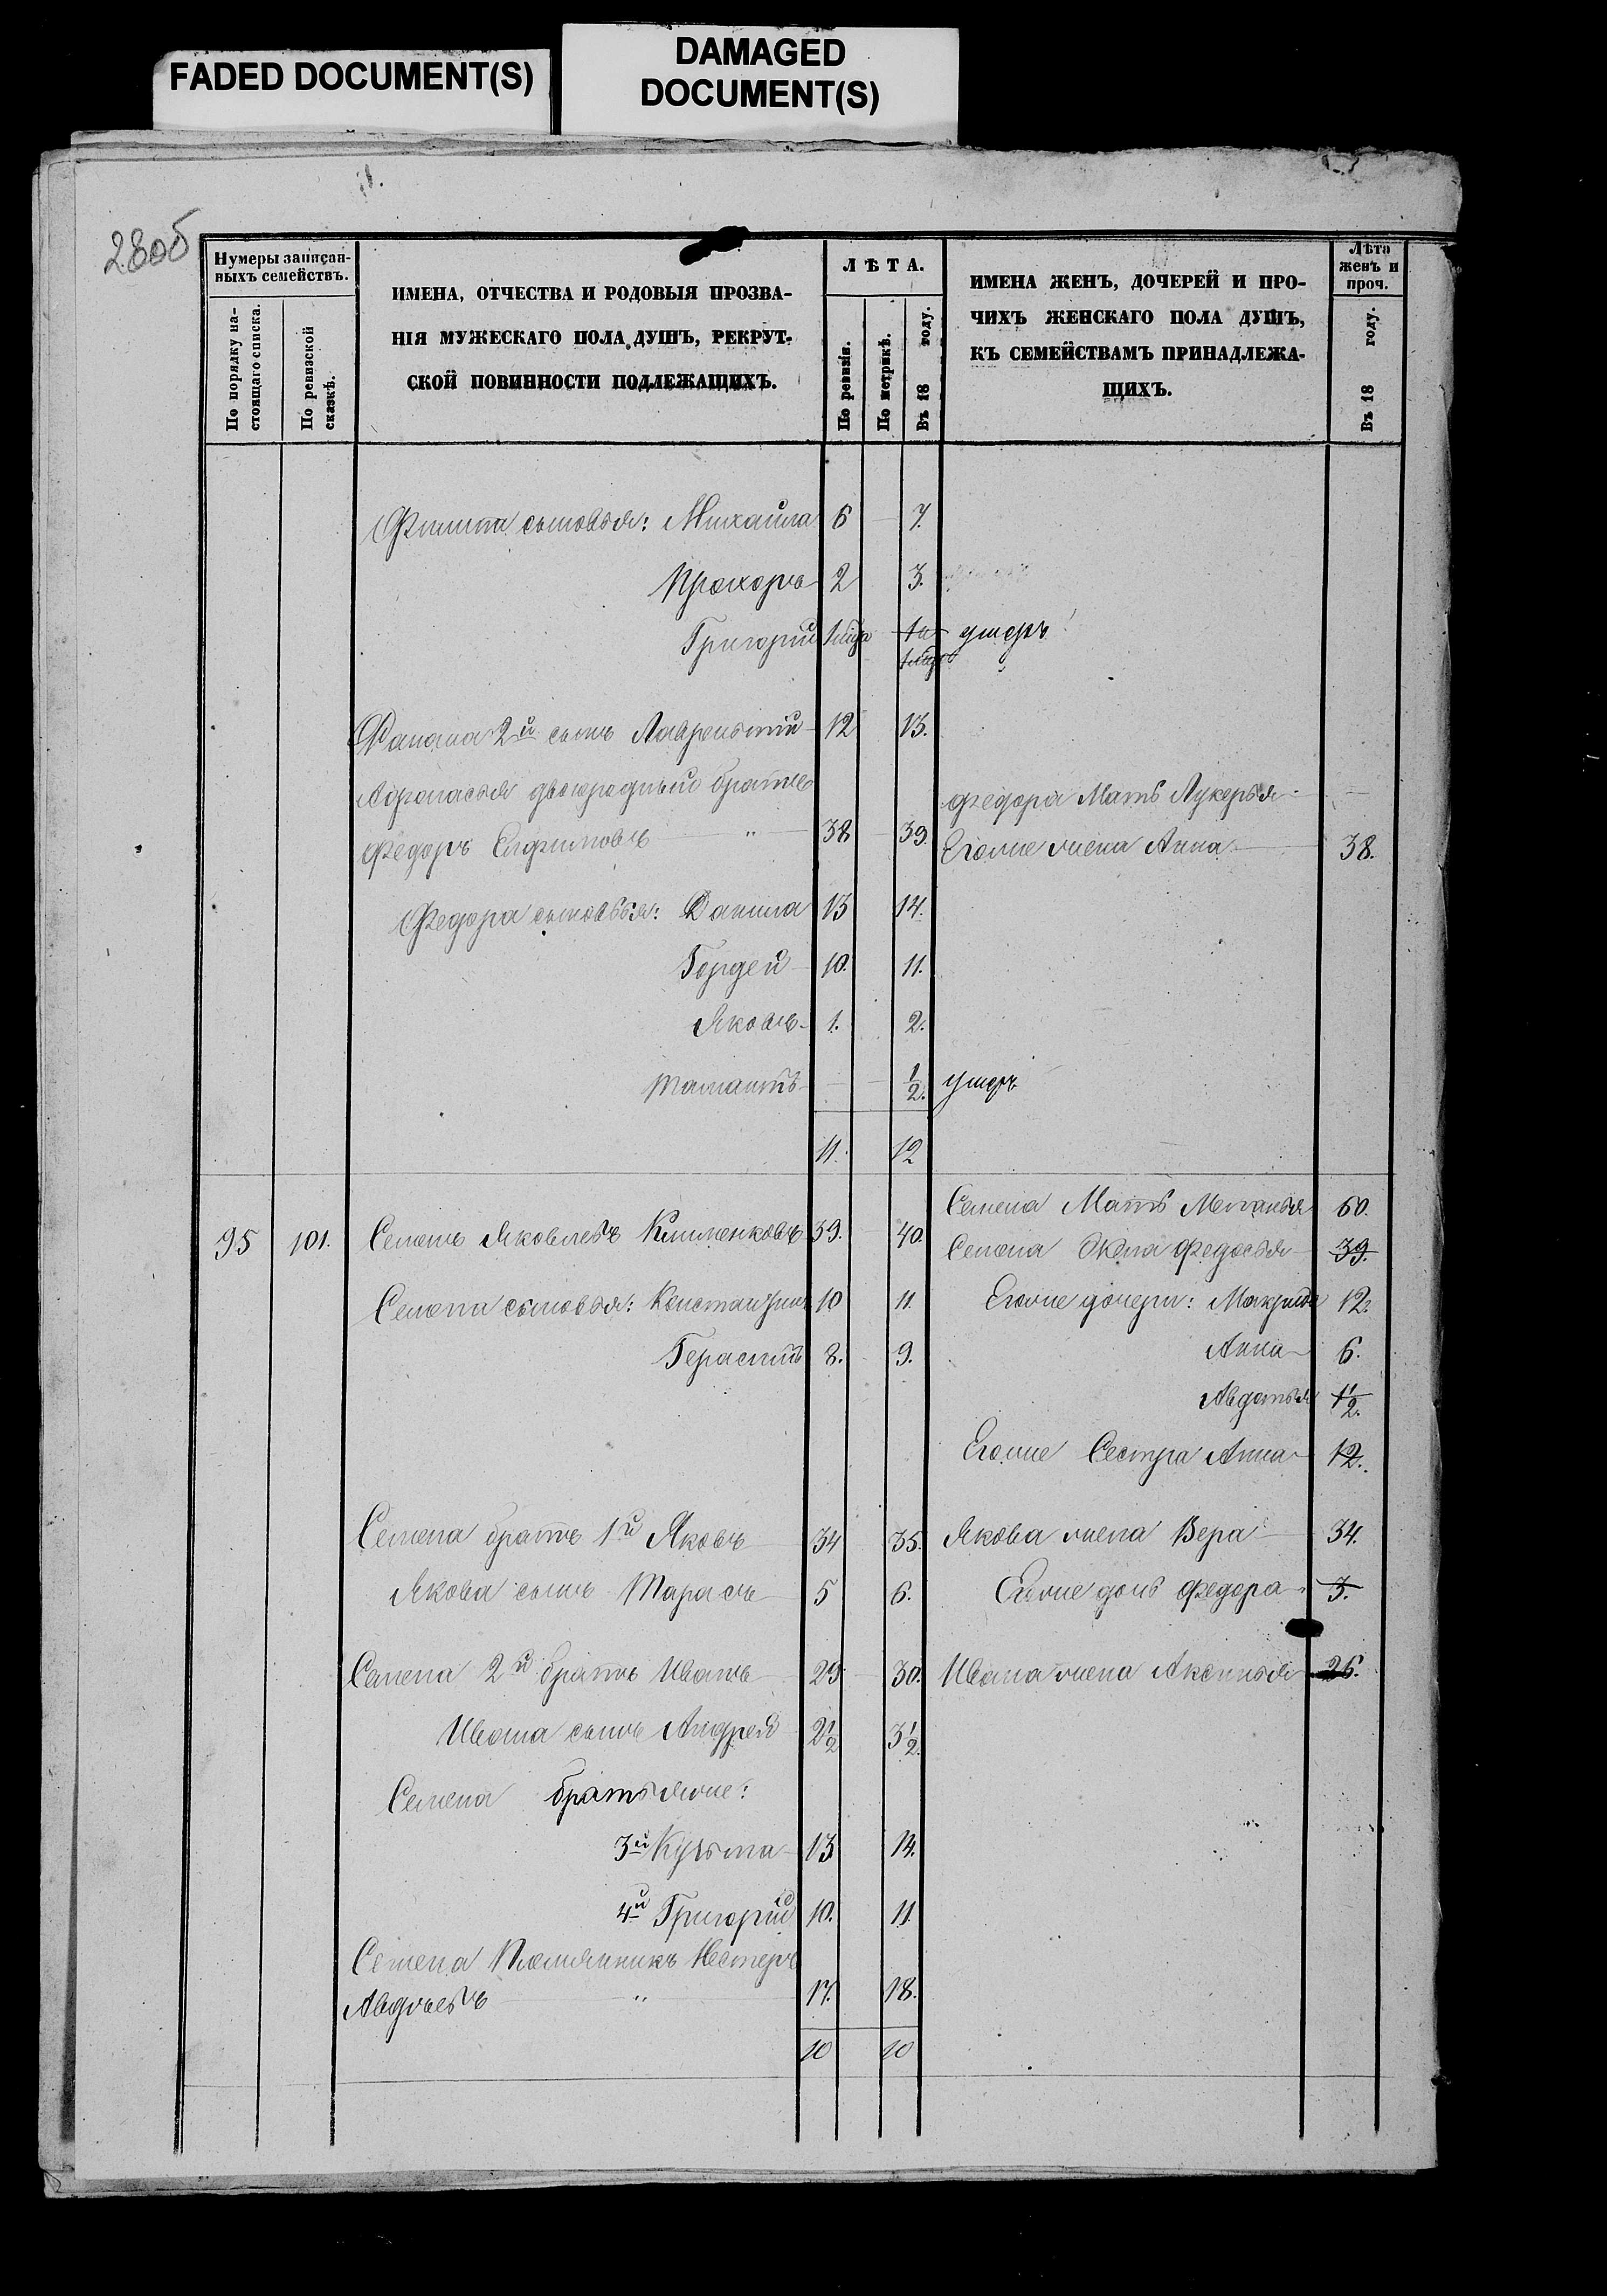 FADED DOCUMENT(S)
DAMAGED
DOCUMENT(S)
280об
Нумеры записан-
ныхъ семействъ.
По порядку на-
стоящаго списка.
По ревизской
сказкѣ.
ИМЕНА, ОТЧЕСТВА И РОДОВЫЯ ПРОЗВА-
НІЯ МУЖЕСКАГО ПОЛА ДУШЪ, РЕКРУТ-
СКОЙ ПОВИННОСТИ ПОДЛЕЖАЩИХЪ.
ЛѢТА.
По ревизіи.
По метрикѣ.
Въ 18 году.
ИМЕНА ЖЕНЪ, ДОЧЕРЕЙ И ПРО-
ЧИХЪ ЖЕНСКАГО ПОЛА ДУШЪ,
КЪ СЕМЕЙСТВАМЪ ПРИНАДЛЕЖА-
ЩИХЪ.
Лѣта
женъ и
проч.
Въ 18 году.
Филипа сыновья: Михаила 6 7.
Прохоръ 2 3.
Григорій умеръ
2й сынъ Лаврентій 12 13.
Афонасья двоюродный братъ
Федора Мать Лукерья
Федоръ Ефимовъ " 38 39. Егоже жена Анна 38.
Федора сыновья: Данила 13 14.
Гордей 10. 11.
Яковъ 1. 2.
1/2. умеръ
11. 12
Семена Мать Меланья 60.
95 101. Семенъ Яковлевъ Клименковъ 39. 40.
Семена Жена Федосья 39.
Семена сыновья: Константинъ 10 11. Егоже дочери: Макрида 12.
Герасимъ 8. 9. Анна 6.
Авдотья 1/2.
Егоже Сестра Анна 12.
Семена братъ 1й Яковъ 34 35. Якова жена Вера 34.
Якова сынъ Тарасъ 5 6. Егоже дочь Федора 3.
Семена 2й братъ Иванъ 29 30. Ивана жена Аксинья 26.
Ивана сынъ Андрей 2 1/2 3 1/2.
Семена братья же:
3й Кузьма 13 14.
4й Григорій 10. 11.
Семена Племянникъ Нестеръ
Авдѣевъ " 17. 18.
10 10